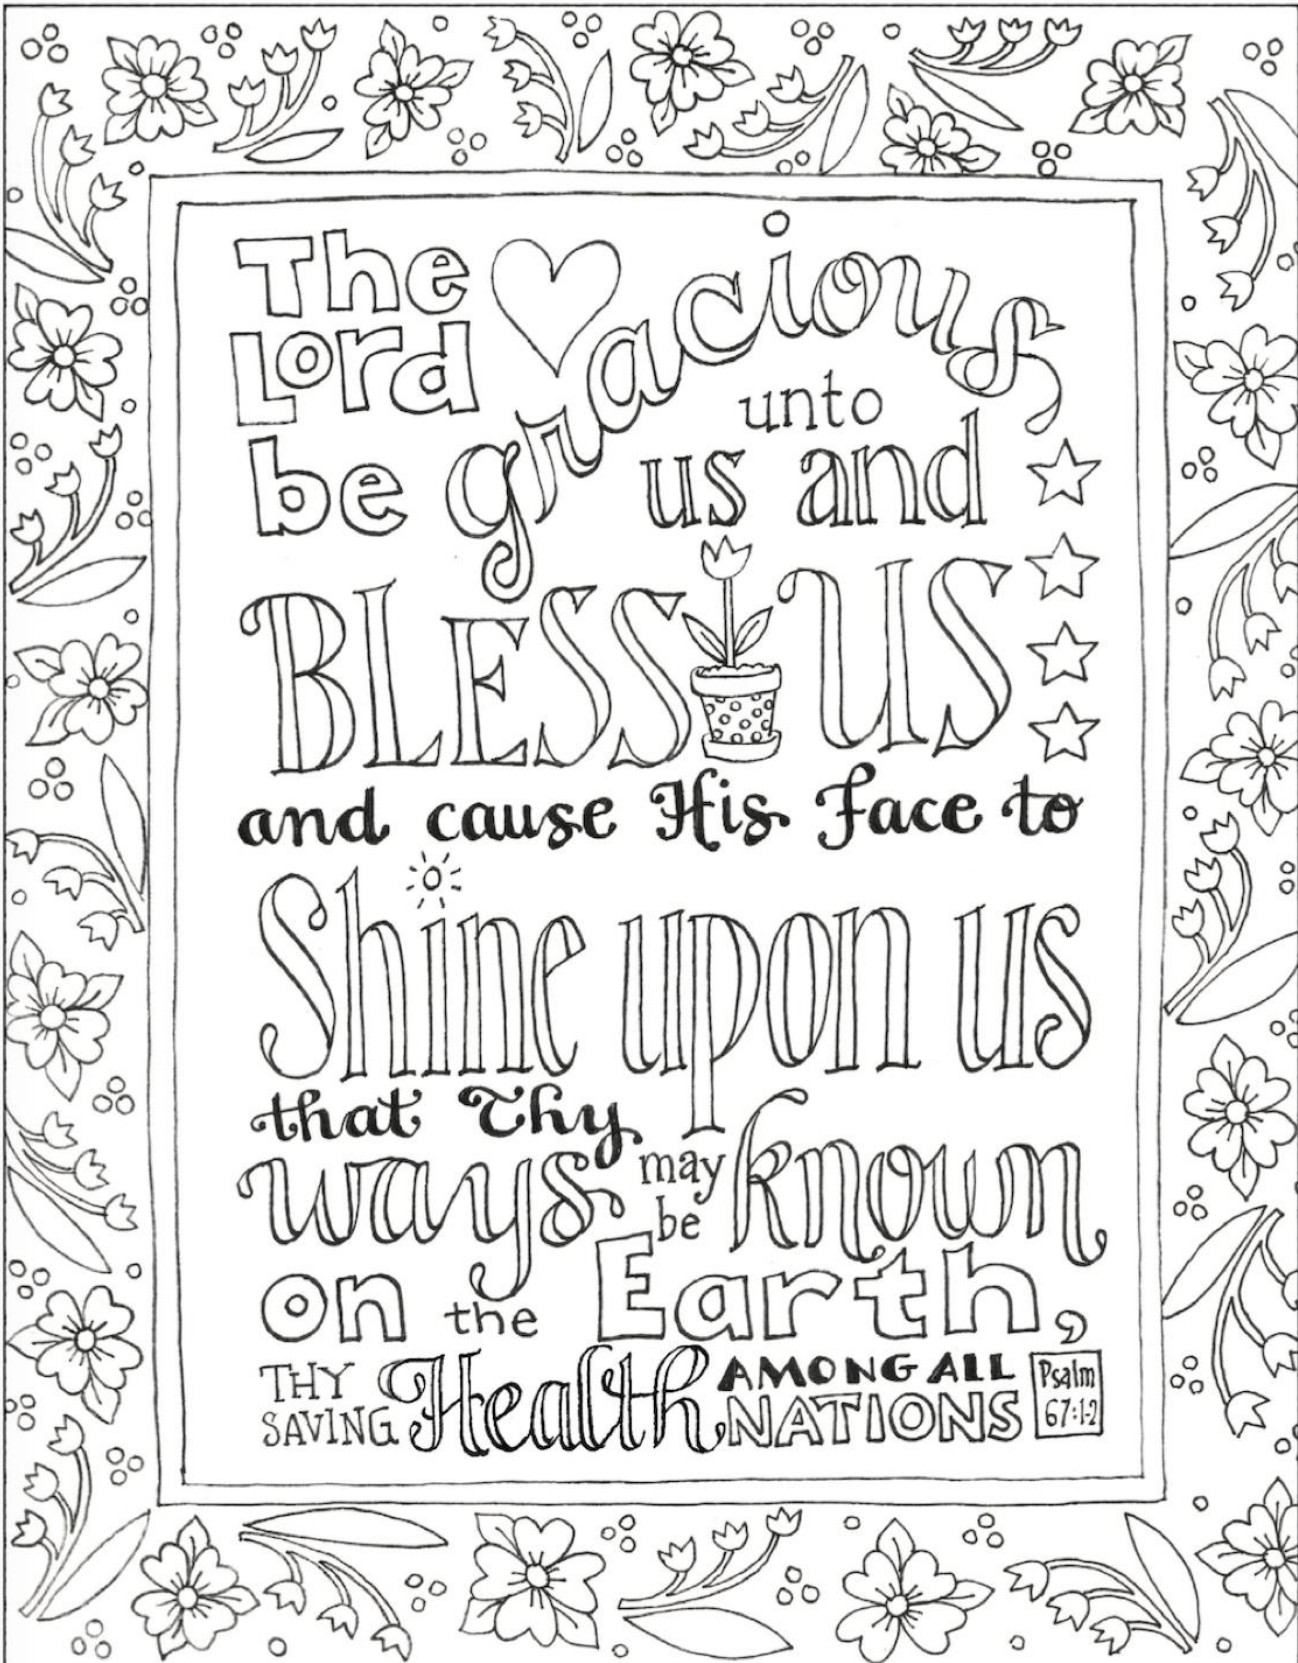 The
Lord
be gracious
unto
us and
BLESS US
and cause His Face to
Shine upon us
that Thy
ways may be known
on the Earth,
THY SAVING Health AMONG ALL NATIONS
Psalm
67:1-2